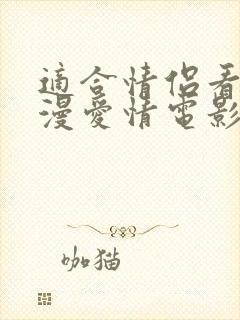 適合情侶看
漫愛情電影
咖猫